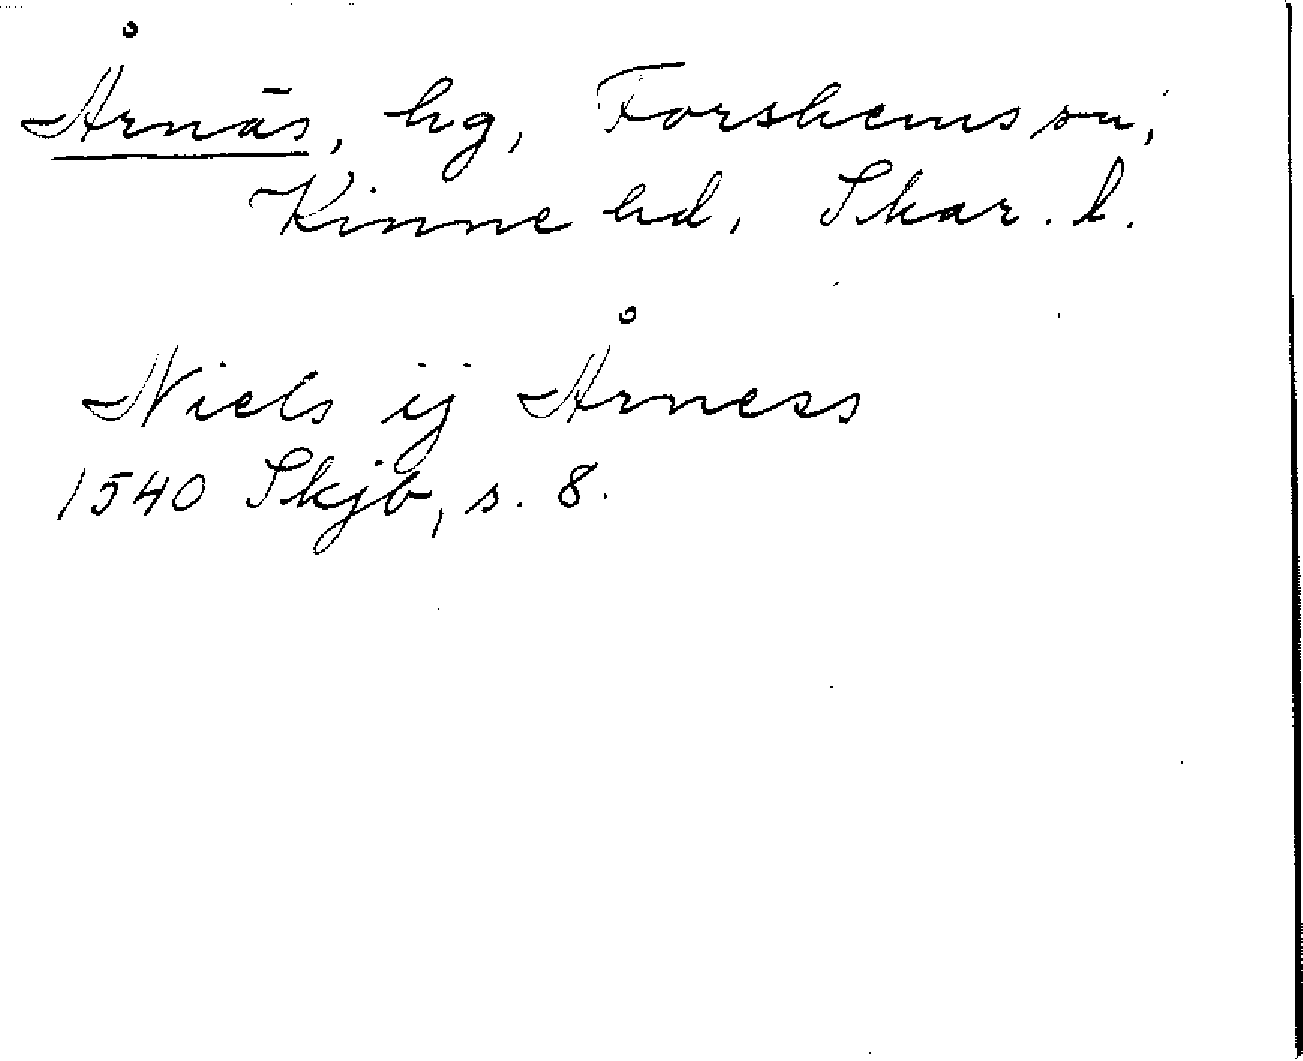 Årnäs, hg, Forshems sn,
Kinne hd, Skar. l.
Niels ij Årness
1540 Skjb, s. 8.